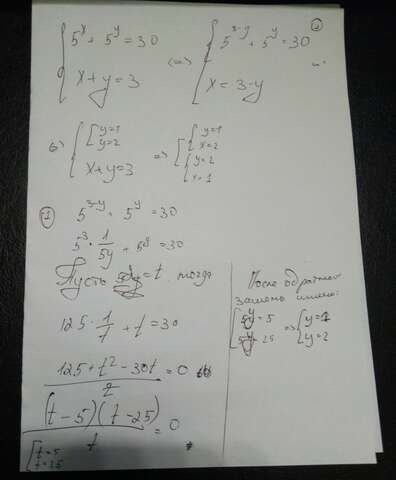 { 5^x + 5^y = 30
x + y = 3
<=> { 5^{3-y} + 5^y = 30
x = 3 - y
{ [ y = 1
y = 2
x + y = 3
=> [ { y = 1
x = 2
{ y = 2
x = 1
5^{3-y} + 5^y = 30
5^3 · 1/5^y + 5^y = 30
Пусть 5^y = t, тогда
125 · 1/t + t = 30
(125 + t^2 - 30t)/t = 0
(t - 5)(t - 25)/t = 0
[ t = 5
t = 25
После обратной
замены имеем:
[ 5^y = 5
5^y = 25
=> [ y = 1
y = 2